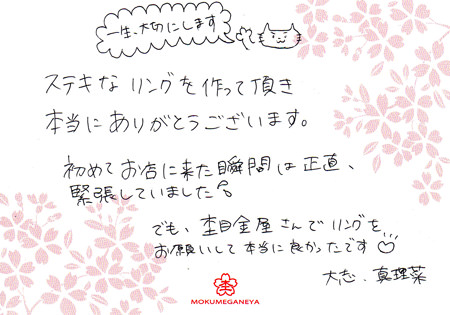 一生、大切にします
ステキな リングを作って頂き
本当に ありがとうございます。
初めて お店に来た瞬間は 正直、
緊張していました
でも、杢目金屋さんで リングを
お願いして 本当に 良かったです♡
大志、真理菜
MOKUMEGANEYA